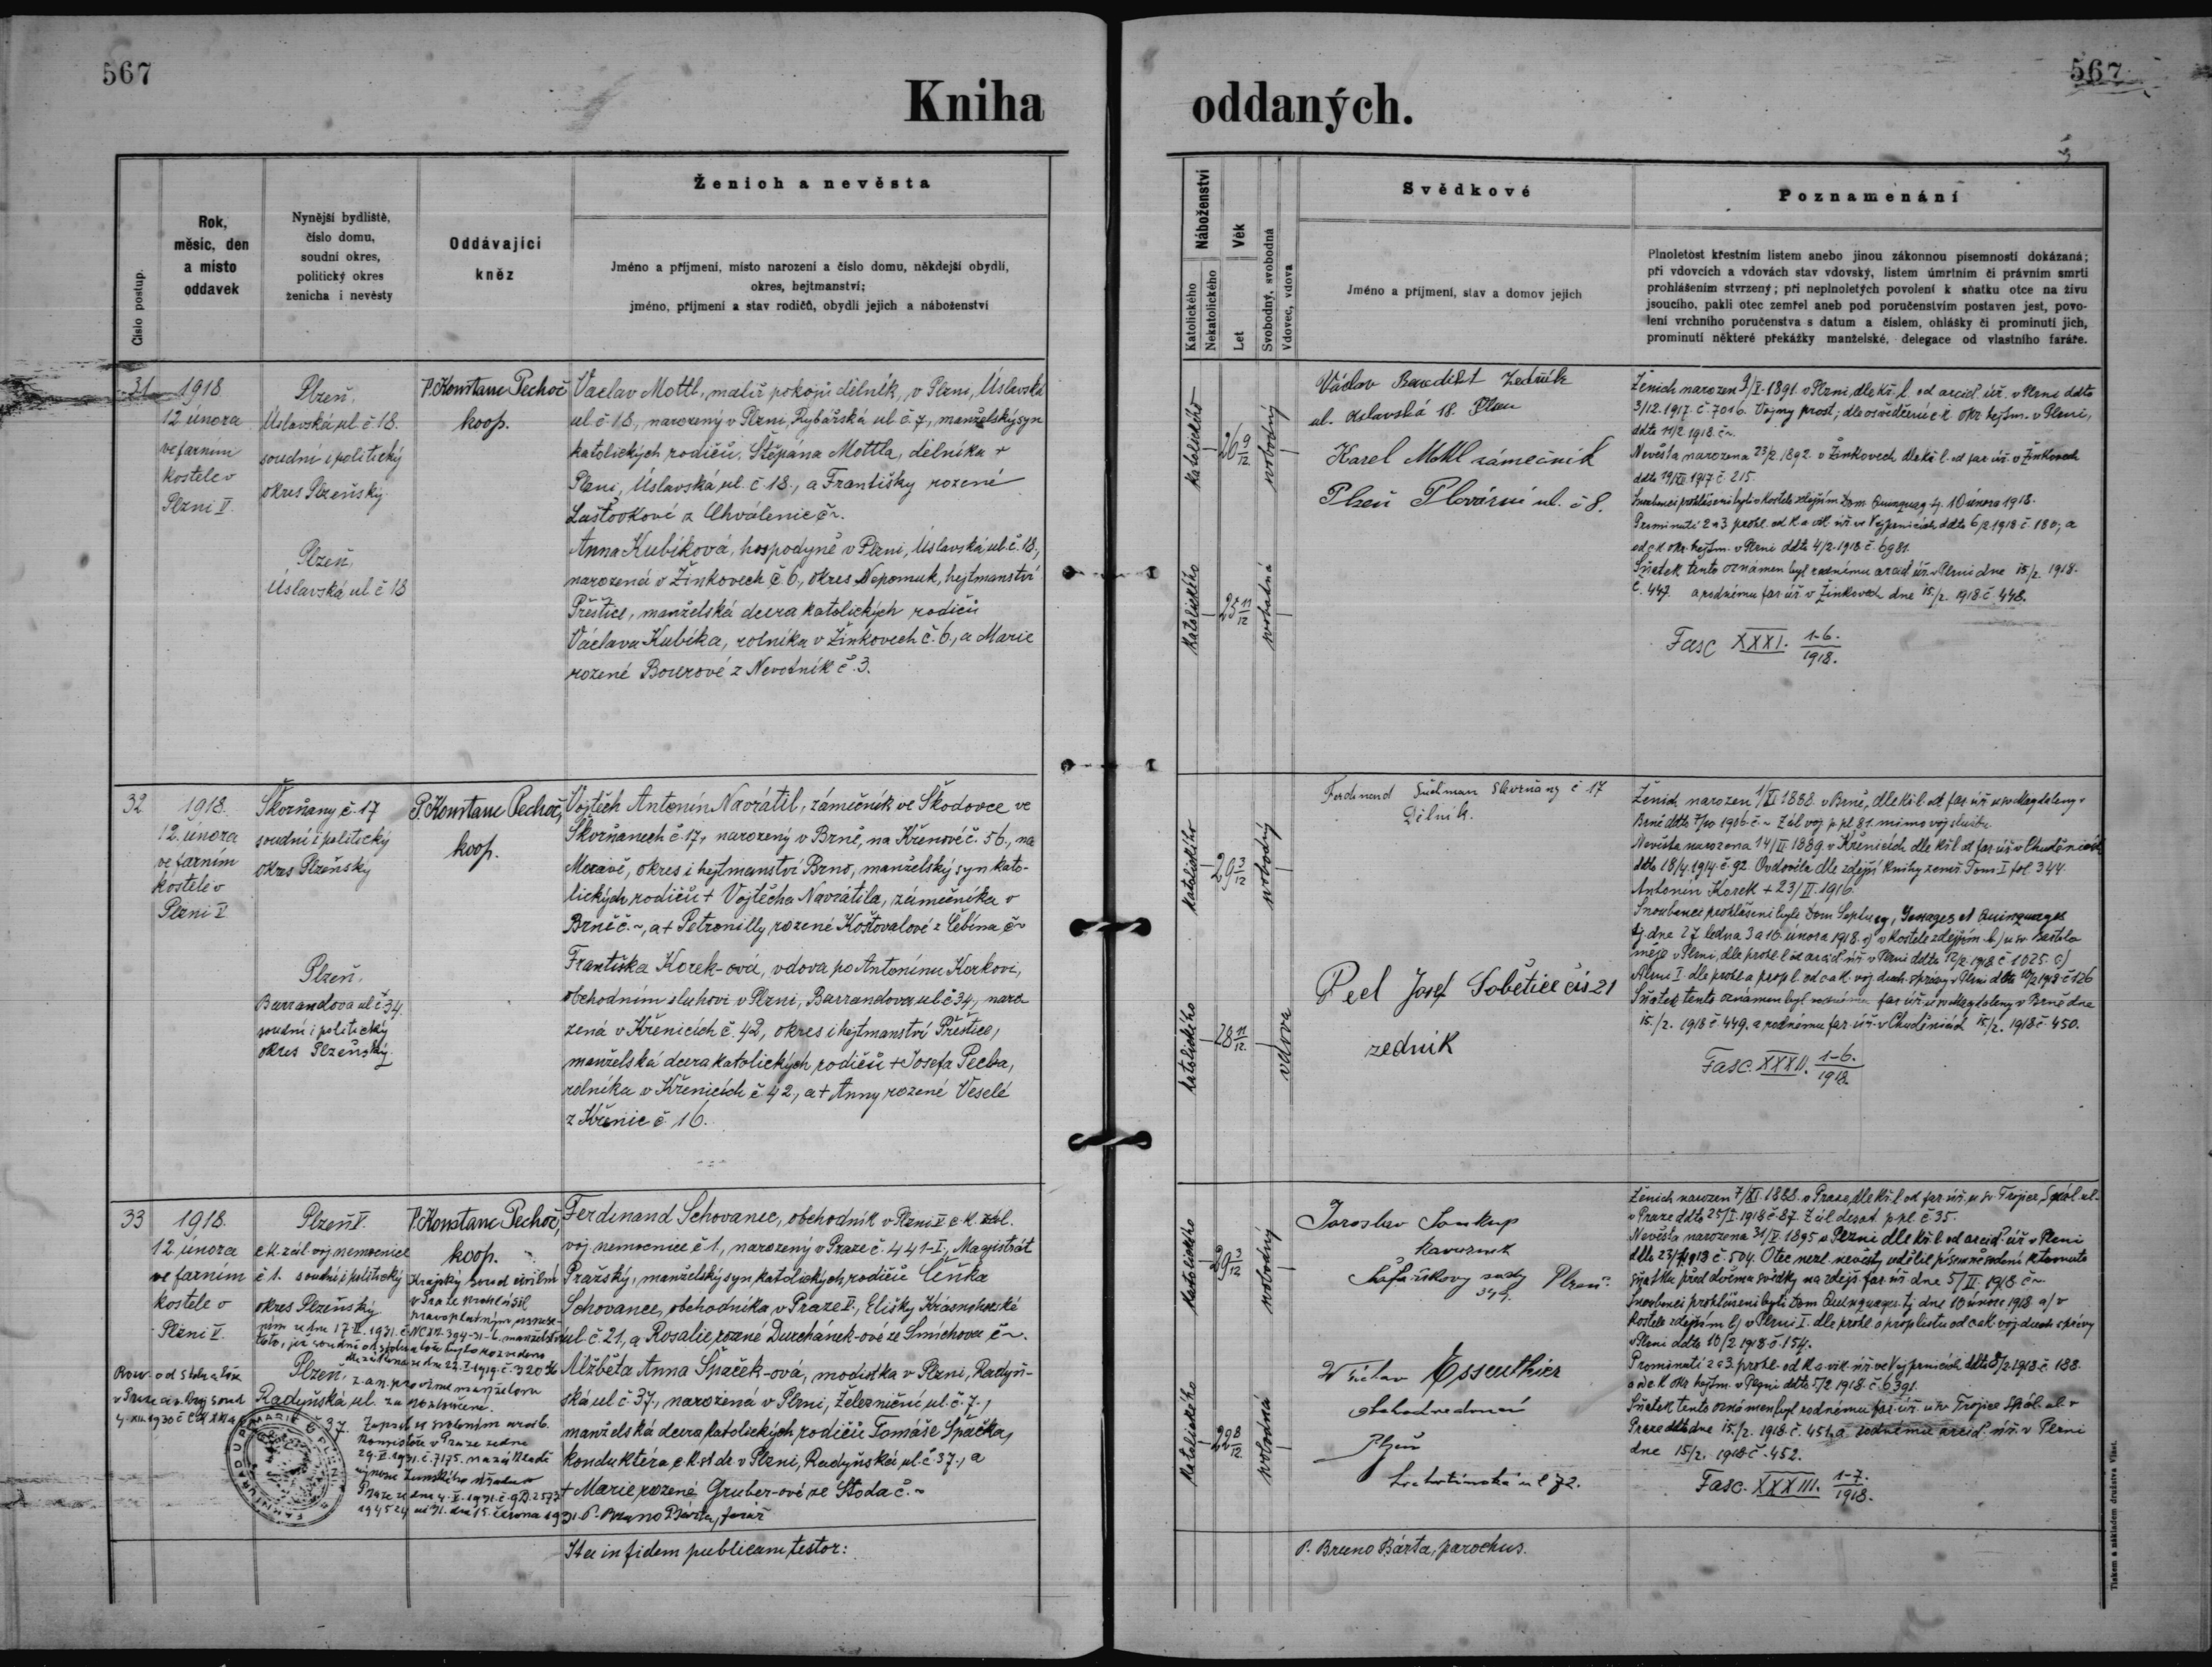 567
567
Kniha
oddaných.
Číslo postup.
Rok,
měsíc, den
a místo
oddavek
Nynější bydliště,
číslo domu,
soudní okres,
politický okres
ženicha i nevěsty
Oddávající
kněz
Ženich a nevěsta
Jméno a příjmení, místo narození a číslo domu, někdejší obydlí,
okres, hejtmanství;
jméno, příjmení a stav rodičů, obydlí jejich a náboženství
Náboženství
Katolického
Nekatolického
Věk
Let
Svobodný, svobodná
Vdovec, vdova
Svědkové
Jméno a příjmení, stav a domov jejich
Poznamenání
Plnoletost křestním listem anebo jinou zákonnou písemností dokázaná;
při vdovcích a vdovách stav vdovský, listem úmrtním či právním smrti
prohlášením stvrzený; při neplnoletých povolení k sňatku otce na živu
jsoucího, pakli otec zemřel aneb pod poručenstvím postaven jest, povo-
lení vrchního poručenstva s datum a číslem, ohlášky či prominutí jich,
prominutí některé překážky manželské, delegace od vlastního faráře.
31
1918
12 února
ve farním
kostele v
Plzni V.
Plzeň,
Úslavská ul. č 18.
soudní i politický
okres Plzeňský.
Plzeň,
Úslavská ul č 18
P. Konstanc Pechoč
koop.
Václav Mottl, malíř pokojů dělník, v Plzni, Úslavská
ul. č 18, narozený v Plzni, Rybářská ul č. 7, manželský syn
katolických rodičů, Štěpána Mottla, dělníka v
Plzni, Úslavská ul. č 18., a Františky rozené
Laštovkové z Chválenic č~.
Anna Kubíková, hospodyně v Plzni, Úslavská ul. č. 18,
narozená v Žinkovech č 6, okres Nepomuk, hejtmanství
Přeštice, manželská dcera katolických rodičů
Václava Kubíka, rolníka v Žinkovech č. 6, a Marie
rozené Bourové z Nevotník č 3.
katolického
26 9/12
svobodný
katolického
25 11/12
svobodná
Václav Benedikt Zedník
ul. Úslavská 18. Plzeň
Karel Mottl zámečník
Plzeň Plovární ul. č 8.
Ženich narozen 9/V. 1891 v Plzni, dle kř. l. od arcid. úř. v Plzni ddto
3/12. 1917. č. 7016. Vojny prost, dle osvědčení c. k. okr. hejtm. v Plzni,
ddto 11/2 1918. č~.
Nevěsta narozena 23/2. 1892. v Žinkovech dle kř. l. od far. úř. v Žinkovech
č. 215.
Snoubenci prohlášeni byli v kostele zdejším Dom. Quinquag. tj. 10 února 1918.
Prominutí 2 a 3 prohl. od k. a vik. úř. ve Vejprnicích, ddto 6/2. 1918 č. 180, a
od c. k. okr. hejtm. v Plzni ddto 4/2. 1918 č. 6981.
Sňatek tento oznámen byl rodnému arcid. úř. v Plzni dne 15/2. 1918.
č. 447. a rodnému far. úř. v Žinkovech dne 15/2. 1918 č. 448.
Fasc XXXI. 1-6./1918.
32
1918.
12. února
ve farním
kostele v
Plzni V
Škorňany č. 17
soudní i politický
okres Plzeňský
Plzeň.
Barrandova ul č 34.
soudní i politický
okres Plzeňský.
P. Konstanc Pechoč,
koop.
Vojtěch Antonín Navrátil, zámečník ve Škodovce ve
Škorňanech č. 17, narozený v Brně, na Křenové č. 56., na
Moravě, okres i hejtmanství Brno, manželský syn kato-
lických rodičů + Vojtěcha Navrátila, zámečníka v
Brně č. ~, a + Petronilly, rozené Koštovalové z Čebína č~
Františka Korek-ová, vdova po Antonínu Korkovi,
obchodním sluhovi v Plzni, Barrandova ul č 34, naro
zená v Křenicích č. 42, okres i hejtmanství Přeštice,
manželská dcera katolických rodičů + Josefa Pecla,
rolníka v Křenicích č. 42, a + Anny rozené Veselé
z Křenic č 16.
katolického
29 3/12
svobodný
katolického
28 11/12
vdova
Ferdinand Škorňany č 17
Dělník.
Pecl Josef Soběticeč čís 21
zedník
Ženich narozen 1/XI 1888. v Brně, dle kř. l. od far úř. u sv Magdaleny v
Brně ddto 7/10 1906. č.~ Zál voj. p. pl. 81. mimo voj službu
Nevěsta narozena 14/II 1889. v Křenicích dle kř l od far úř v Chuděnicích
ddto 18/4. 1914. č. 92. Ovdověla dle zdejší knihy zemř. Tom I fol. 344.
Antonín Korek + 23/II. 1916.
Snoubenci prohlášeni byli Dom Septuag, Sexages et Quinquages
tj. dne 27 ledna 3 a 10. února 1918. a) v kostele zdejším b) u sv. Bartolo
měje v Plzni, dle prohl. l. od arcid úř v Plzni ddto 12/2. 1918 č 1025. c)
v Plzni I. dle prohl. a prop l. od c. a k. voj. duch. správy v Plzni ddto 10/2 1918 č 126
Sňatek tento oznámen byl rodnému far. úř. u sv Magdaleny v Brně dne
15./2. 1918 č 449. a rodnému far. úř. v Chuděnicích 15/2. 1918 č. 450.
Fasc. XXXII. 1-6./1918.
33
1918.
12, února
ve farním
kostele v
Plzni V.
Plzeň V.
c. k. zál. voj nemocnice
č 1. soudní i politický
okres Plzeňský
Plzeň,
Radyňská ul.
č 37.
P. Konstanc Pechoč,
koop.
Krajský soud civilní
v Praze prohlásil
pravoplatným usnese-
ním ze dne 17. II. 1931. č. NC XII. 394-31-6. manželství
toto, již soudně od stolu a lože bylo rozvedeno
ze dne 22. I. 1919. č. 320
za rozloučené.
Zapsal se svolením arcib.
konsistoře v Praze ze dne
29. V. 1931. č. 7175. na základě
výnosu Zemského úřadu v
Praze ze dne 4. V. 1931. č. 9D. 2573
194524 ai 31. dne 15. června 1931. P. Bruno Bárta, farář
Rozv. od stolu a lože
v Praze civ. kraj soud
4. XII. 1930 č
Ferdinand Schovanec, obchodník v Plzni V c. k. zál.
voj. nemocnice č 1., narozený v Praze č. 441-I, Magistrát
Pražský, manželský syn katolických rodičů Čeňka
Schovance, obchodníka v Praze V, Elišky Krásnohorské
ul č. 21, a Rosalie rozené Durchánek-ové ze Smíchova č~.
Alžběta Anna Špaček-ová, modistka v Plzni, Radyň-
ská ul č 37., narozená v Plzni, Železniční ul. č. 7.,
manželská dcera katolických rodičů Tomáše Špačka,
konduktéra c. k. st. dr. v Plzni, Radyňská ul. č 37., a
+ Marie rozené Gruber-ové ze Stoda č.~
katolického
29 3/12
svobodný
katolického
22 8/12
svobodná
Jaroslav Soukup
kavárník
Šafaříkovy sady Plzeň
Václav Essenthier
Plzeň
ul 72.
Ženich narozen 7/XI. 1888. v Praze, dle kř. l. od far. úř. u sv. Trojice, Spál. ul.
v Praze ddto 25/I. 1918 č. 87. Zál desát. p. pl. č 35.
Nevěsta narozena 31/V. 1895 v Plzni dle kř. l. od arcid. úř. v Plzni
č. 504. Otec nezl. nevěsty udělil písemné svolení k tomuto
sňatku před dvěma svědky na zdejš. far. úř. dne 5/II. 1918 č~
Snoubenci prohlášeni byli Dom Quinquages. tj. dne 10 února 1918 a) v
kostele zdejším b) v Plzni I. dle prohl. a prop listu od c a k. voj. duch správy
v Plzni ddto 10/2 1918 č. 154.
Prominutí 2 a 3. prohl. od k. a. vik. úř. ve Vejprnicích ddto 8/2 1918 č. 188.
a od c. k. okr. hejtm. v Plzni ddto 5/2 1918. č. 6391.
Sňatek tento oznámen byl rodnému far. úř. u sv Trojice Spál. ul. v
Praze ddto dne 15./2. 1918. č. 451, a rodnému arcid. úř. v Plzni
dne 15/2. 1918 č. 452.
Fasc. XXXIII. 1-7./1918.
Ita in fidem publicam testor:
P. Bruno Bárta, parochus.
Tiskem a nákladem družstva Vlast.